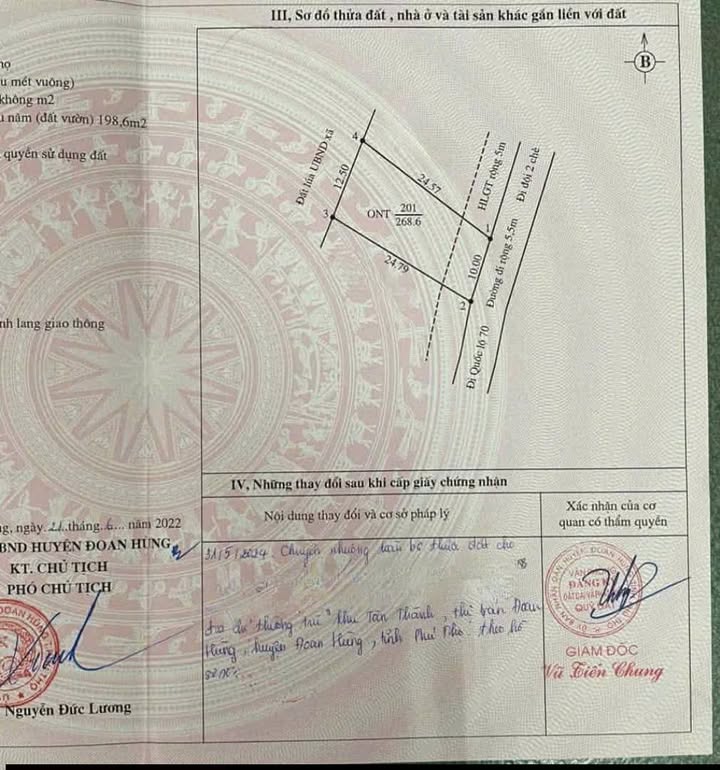 III, Sơ đồ thửa đất , nhà ở và tài sản khác gắn liền với đất
B
họ
u mét vuông)
không m2
u năm (đất vườn) 198,6m2
quyền sử dụng đất
nh lang giao thông
Đất lúa UBND xã
4
12.50
3
24.57
ONT 201
268.6
24.79
1
10.00
2
HLGT rộng 5m
Đường đi rộng 5,5m
Đi đội 2 chè
Đi Quốc lộ 70
IV, Những thay đổi sau khi cấp giấy chứng nhận
Nội dung thay đổi và cơ sở pháp lý
Xác nhận của cơ
quan có thẩm quyền
31/5/2024. Chuyển nhượng toàn bộ thửa đất cho
địa chỉ thường trú khu Tân Thành, thị trấn Đoan
Hùng, huyện Đoan Hùng, tỉnh Phú Thọ theo hồ
ĐĂNG KÝ
GIÁM ĐỐC
Vũ Tiến Chung
ng, ngày 21 tháng 6 năm 2022
BND HUYỆN ĐOAN HÙNG
KT. CHỦ TỊCH
PHÓ CHỦ TỊCH
Nguyễn Đức Lương